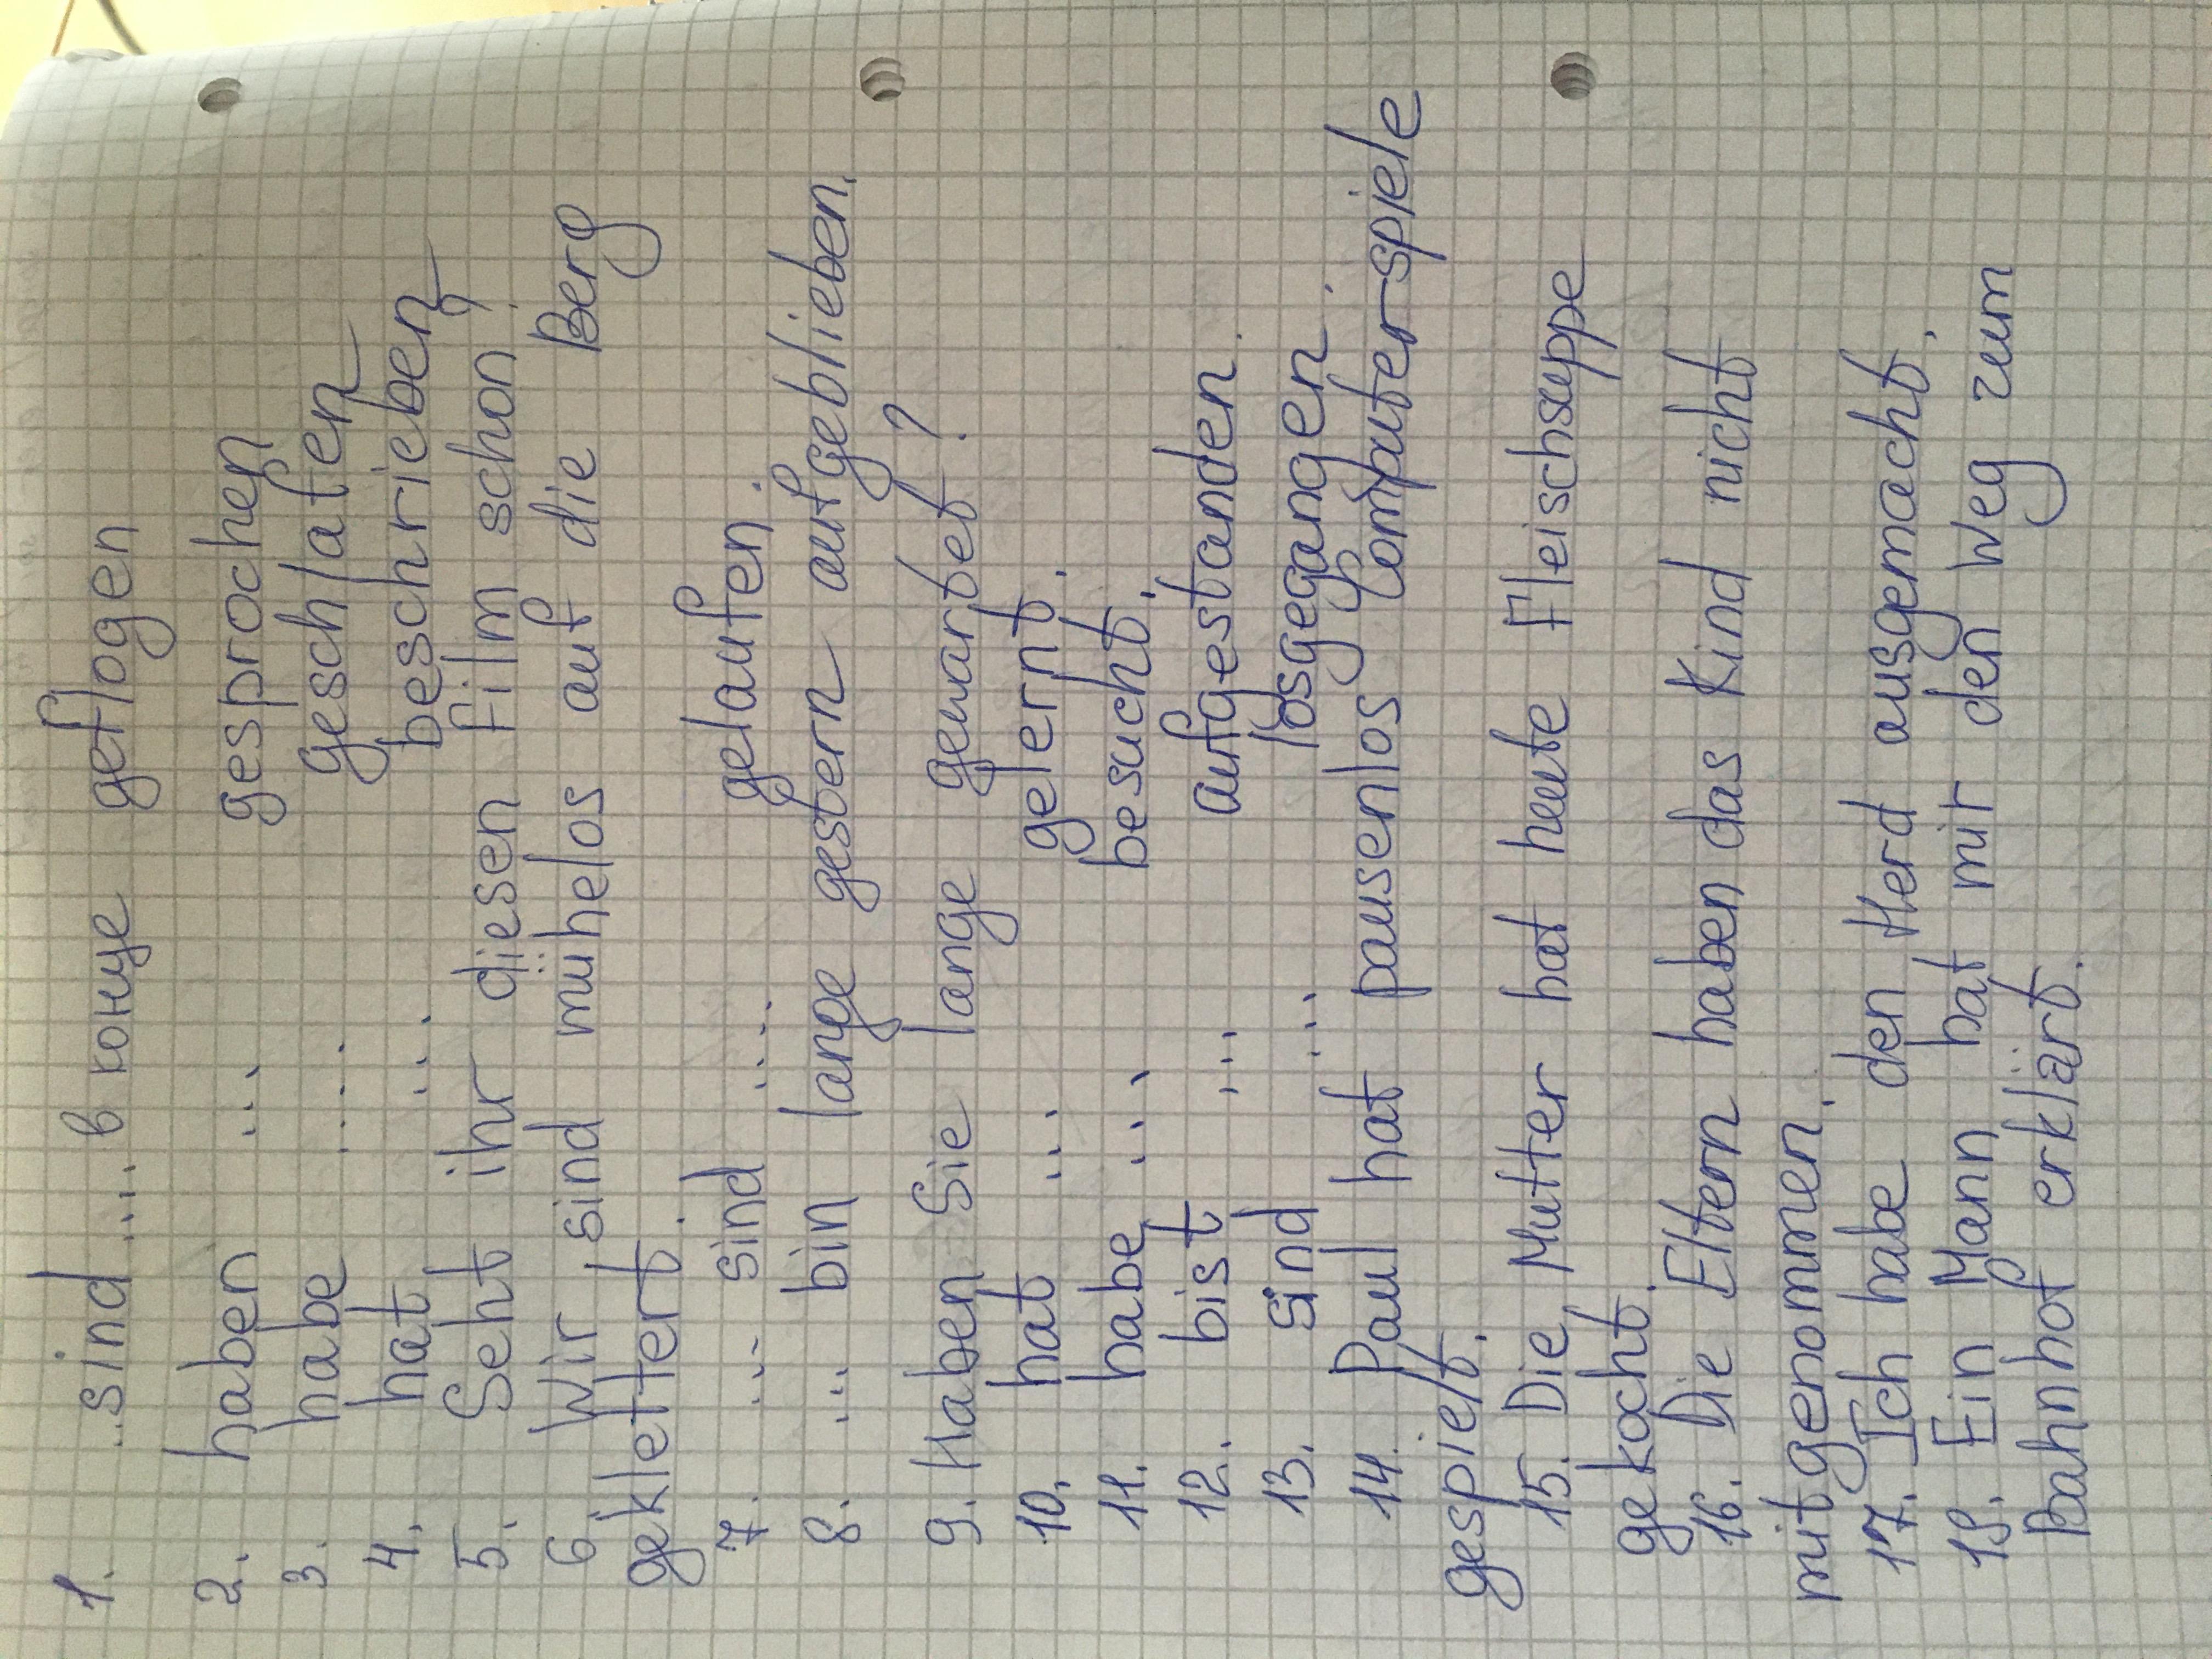 1. ...sind .... в конце geflogen
2. haben ... gesprochen
3. habe .... geschlafen
4. hat ... beschrieben
5. Seht ihr diesen Film schon?
6. Wir sind mühelos auf die Berg
geklettert.
7. ... sind .... gelaufen.
8. ... bin lange gestern aufgeblieben.
9. Haben Sie lange gewartet?
10. hat ... gelernt.
11. habe ... besucht.
12. bist ... aufgestanden.
13. sind ... losgegangen.
14. Paul hat pausenlos Computerspiele
gespielt.
15. Die Mutter hat heute Fleischsuppe
gekocht.
16. Die Eltern haben das Kind nicht
mitgenommen.
17. Ich habe den Herd ausgemacht.
18. Ein Mann hat mir den Weg zum
Bahnhof erklärt.